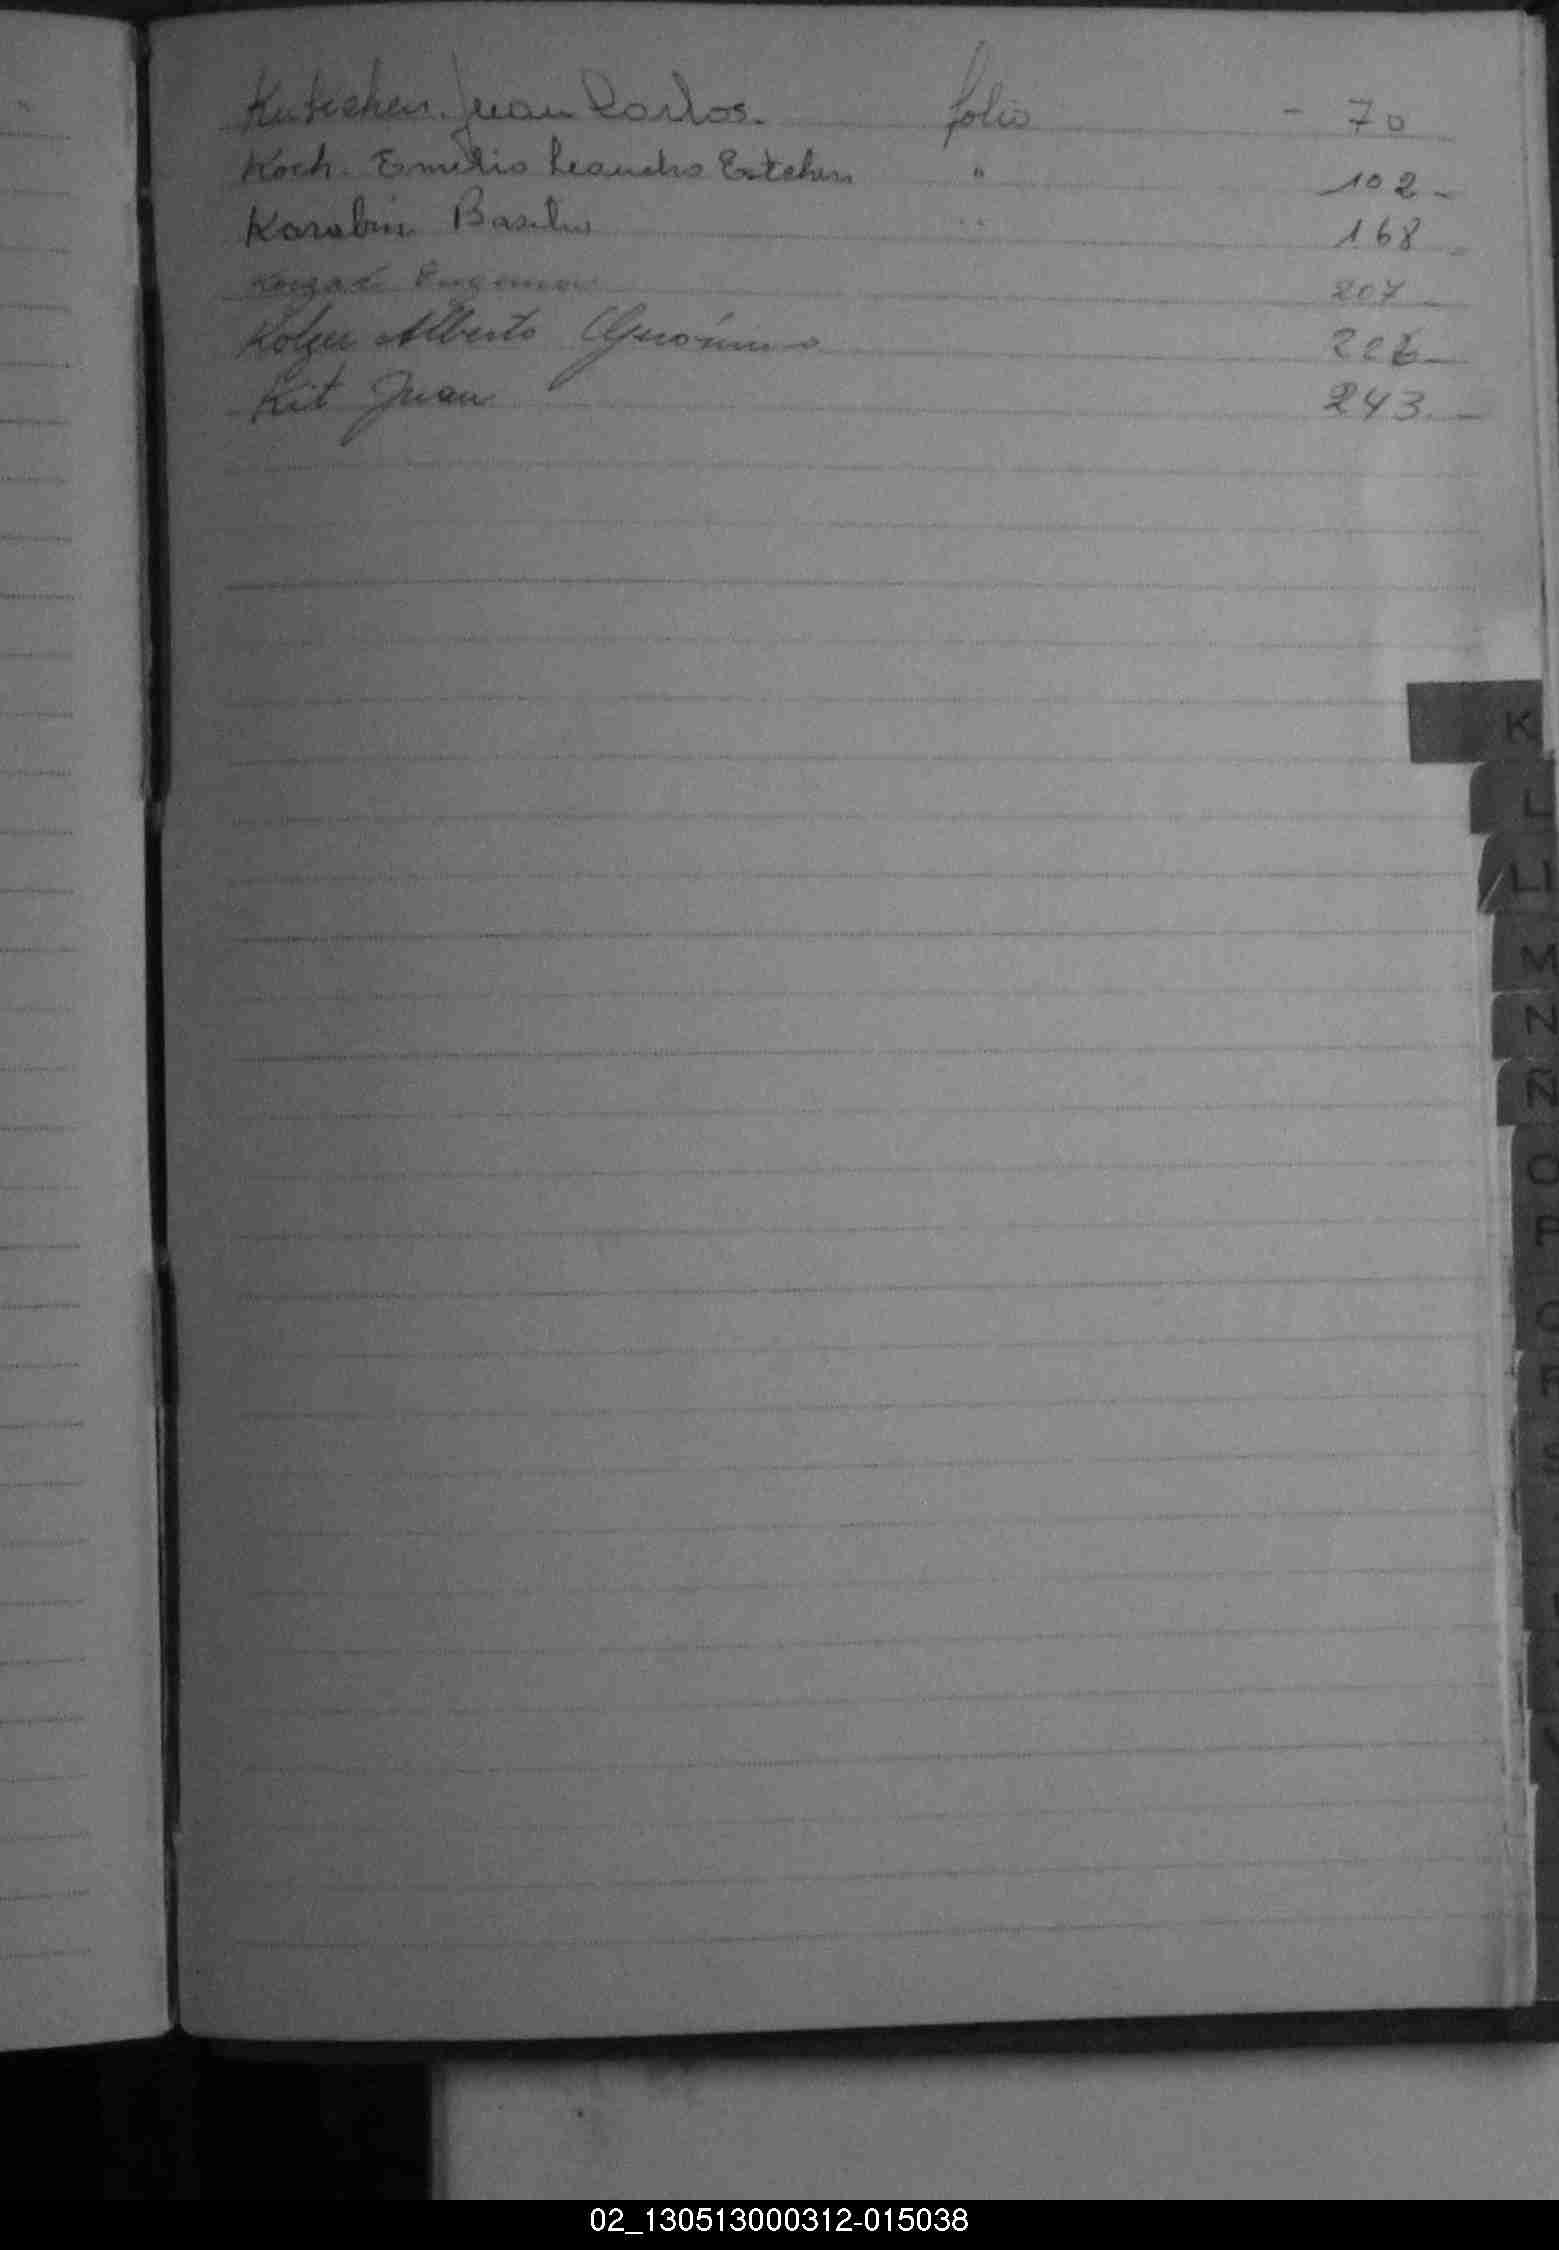 Juan Carlos. folio - 70
Koch. Emilio Leandro Esteban " 102 -
Karabin Basilio " 168 -
Eugenio 207 -
Alberto Gerónimo 226 -
Kit Juan 243. -
K
L
Ll
M
N
Ñ
O
P
Q
R
S
V
02_130513000312-015038